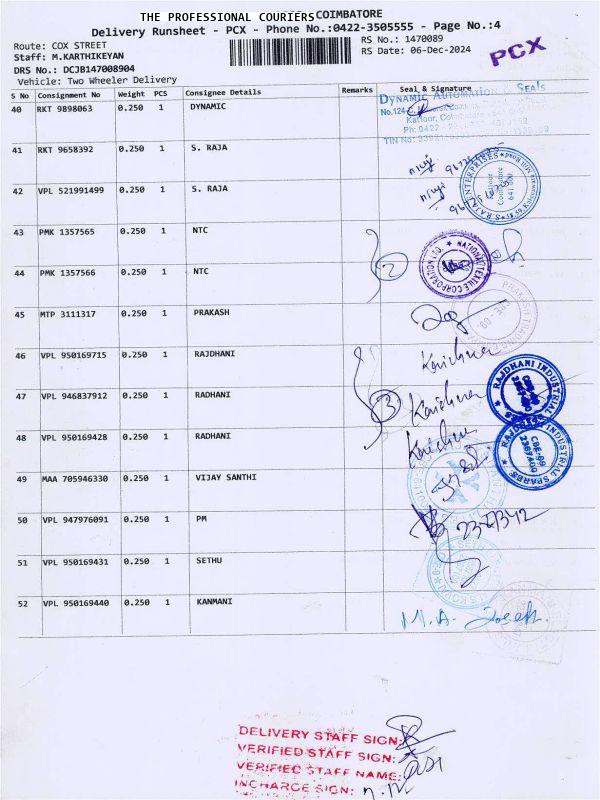 THE PROFESSIONAL COURIERS COIMBATORE
Delivery Runsheet - PCX - Phone No.:0422-3505555 - Page No.:4
Route: COX STREET
RS No.: 1470089
Staff: M.KARTHIKEYAN
RS Date: 06-Dec-2024
PCX
DRS No.: DCJB147008904
Vehicle: Two Wheeler Delivery
S No Consignment No Weight PCS Consignee Details Remarks Seal & Signature
40 RKT 9898063 0.250 1 DYNAMIC
DYNAMIC AUTOMATION & SEALS
41 RKT 9658392 0.250 1 S. RAJA
42 VPL 521991499 0.250 1 S. RAJA
S. RAJA ENTERPRISES
43 PMK 1357565 0.250 1 NTC
44 PMK 1357566 0.250 1 NTC
2
NATIONAL TEXTILE CORPORATION LTD.
45 MTP 3111317 0.250 1 PRAKASH
46 VPL 950169715 0.250 1 RAJDHANI
Krishna
47 VPL 946837912 0.250 1 RADHANI
3
Krishna
RAJDHANI INDUSTRIAL SPARES
48 VPL 950169428 0.250 1 RADHANI
Krishna
RAJDHANI INDUSTRIAL SPARES
CBE-09
2387400
49 MAA 705946330 0.250 1 VIJAY SANTHI
50 PM VPL 947976091 0.250 1 PM
51 VPL 950169431 0.250 1 SETHU
52 VPL 950169440 0.250 1 KANMANI
M.A. Joseph.
DELIVERY STAFF SIGN:
VERIFIED STAFF SIGN:
VERIFIED STAFF NAME:
INCHARGE SIGN: